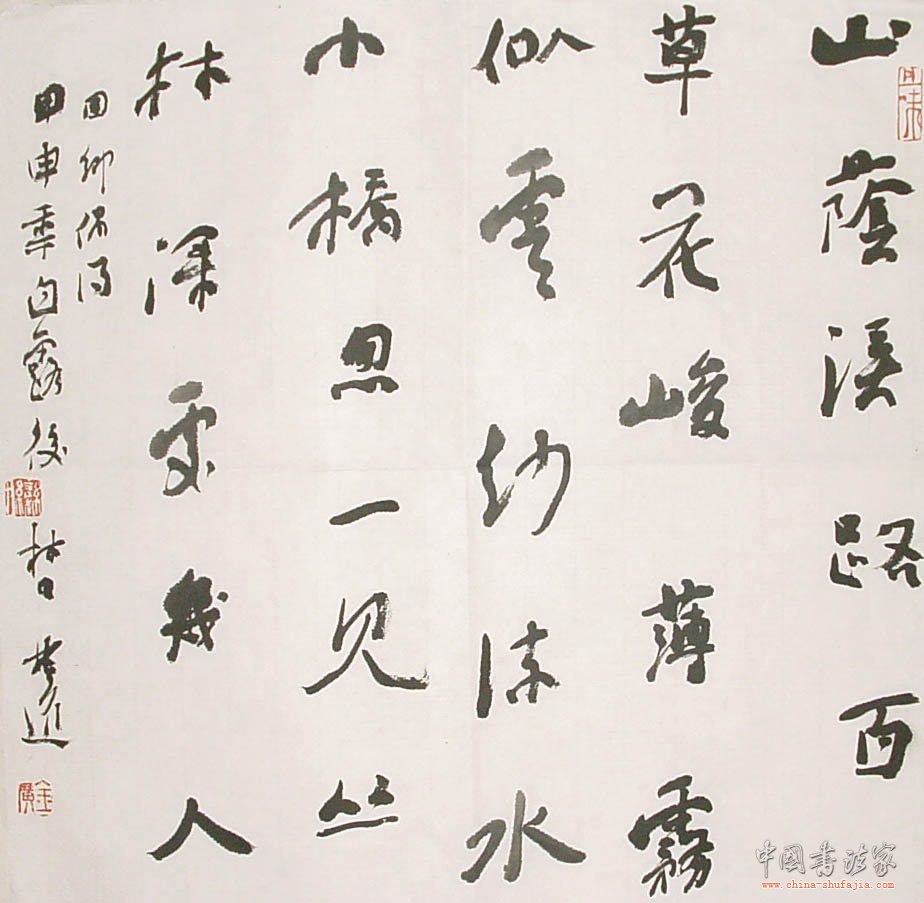 山蔭溪路百
草花峻薄霧
似雲紗流水
小橋忽一见丛
林深處幾人
回鄉偶得
甲申秊白露後
中國書法家
www.china-shufajia.com